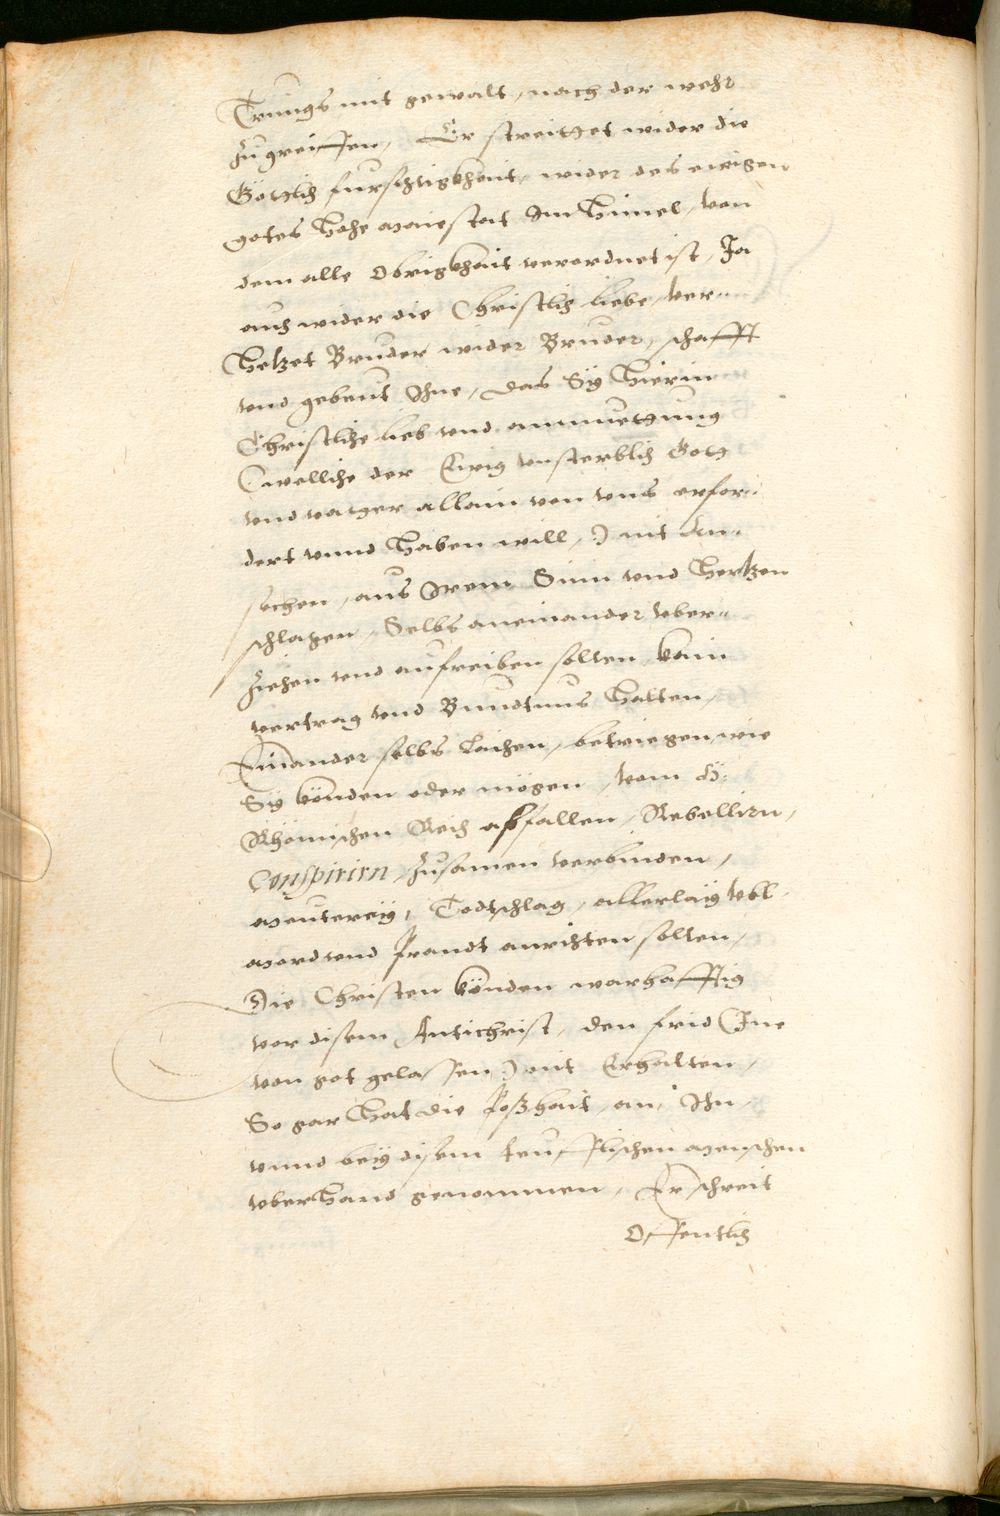 Trungs mit gewalt, nach der wehr
zugreiffen, Er streittet wider die
Göttlich fursichtigkhait, wider des ewigen
gotes Hohe maiestat Im Himel, von
dem alle Obrigkhait verordnet ist, Ja
auch wider die Christlich liebe, ver-
Hetzet Bruder wider Bruder, schafft
vnd gebeut Ihne, das Sy Hierin
Christliche lieb vnd anmuettung
(welliche der Ewig vnsterblich Gott
vnd vatter allain von vns erfor-
dert vnnd Haben will,) nit An-
sechen, aus Irem Sinn vnd Hertzen
schlagen, Selbs aneinander vber-
ziehen vnd aufreiben sollen, kain
vertrag vnd Bundtnus Halten,
Einander selbs Laichen, betriegen, wie
Sy könden oder mögen, vom H:
Rhömischen Reich abfallen, Rebellirn,
Conspirirn, zusamen verbinden,
meuterey, Todtschlag, allerlay vbl
mord vnd prandt anrichten sollen,
Die Christen könden warhafftig
vor disem Antichrist, den frid (Ine
von got gelassen) nit Erhalten,
So gar Hat die poßhait, an, Ihn,
vnnd bey disem teufflischen menschen
vberHand genommen, Er schreit
Offentlich